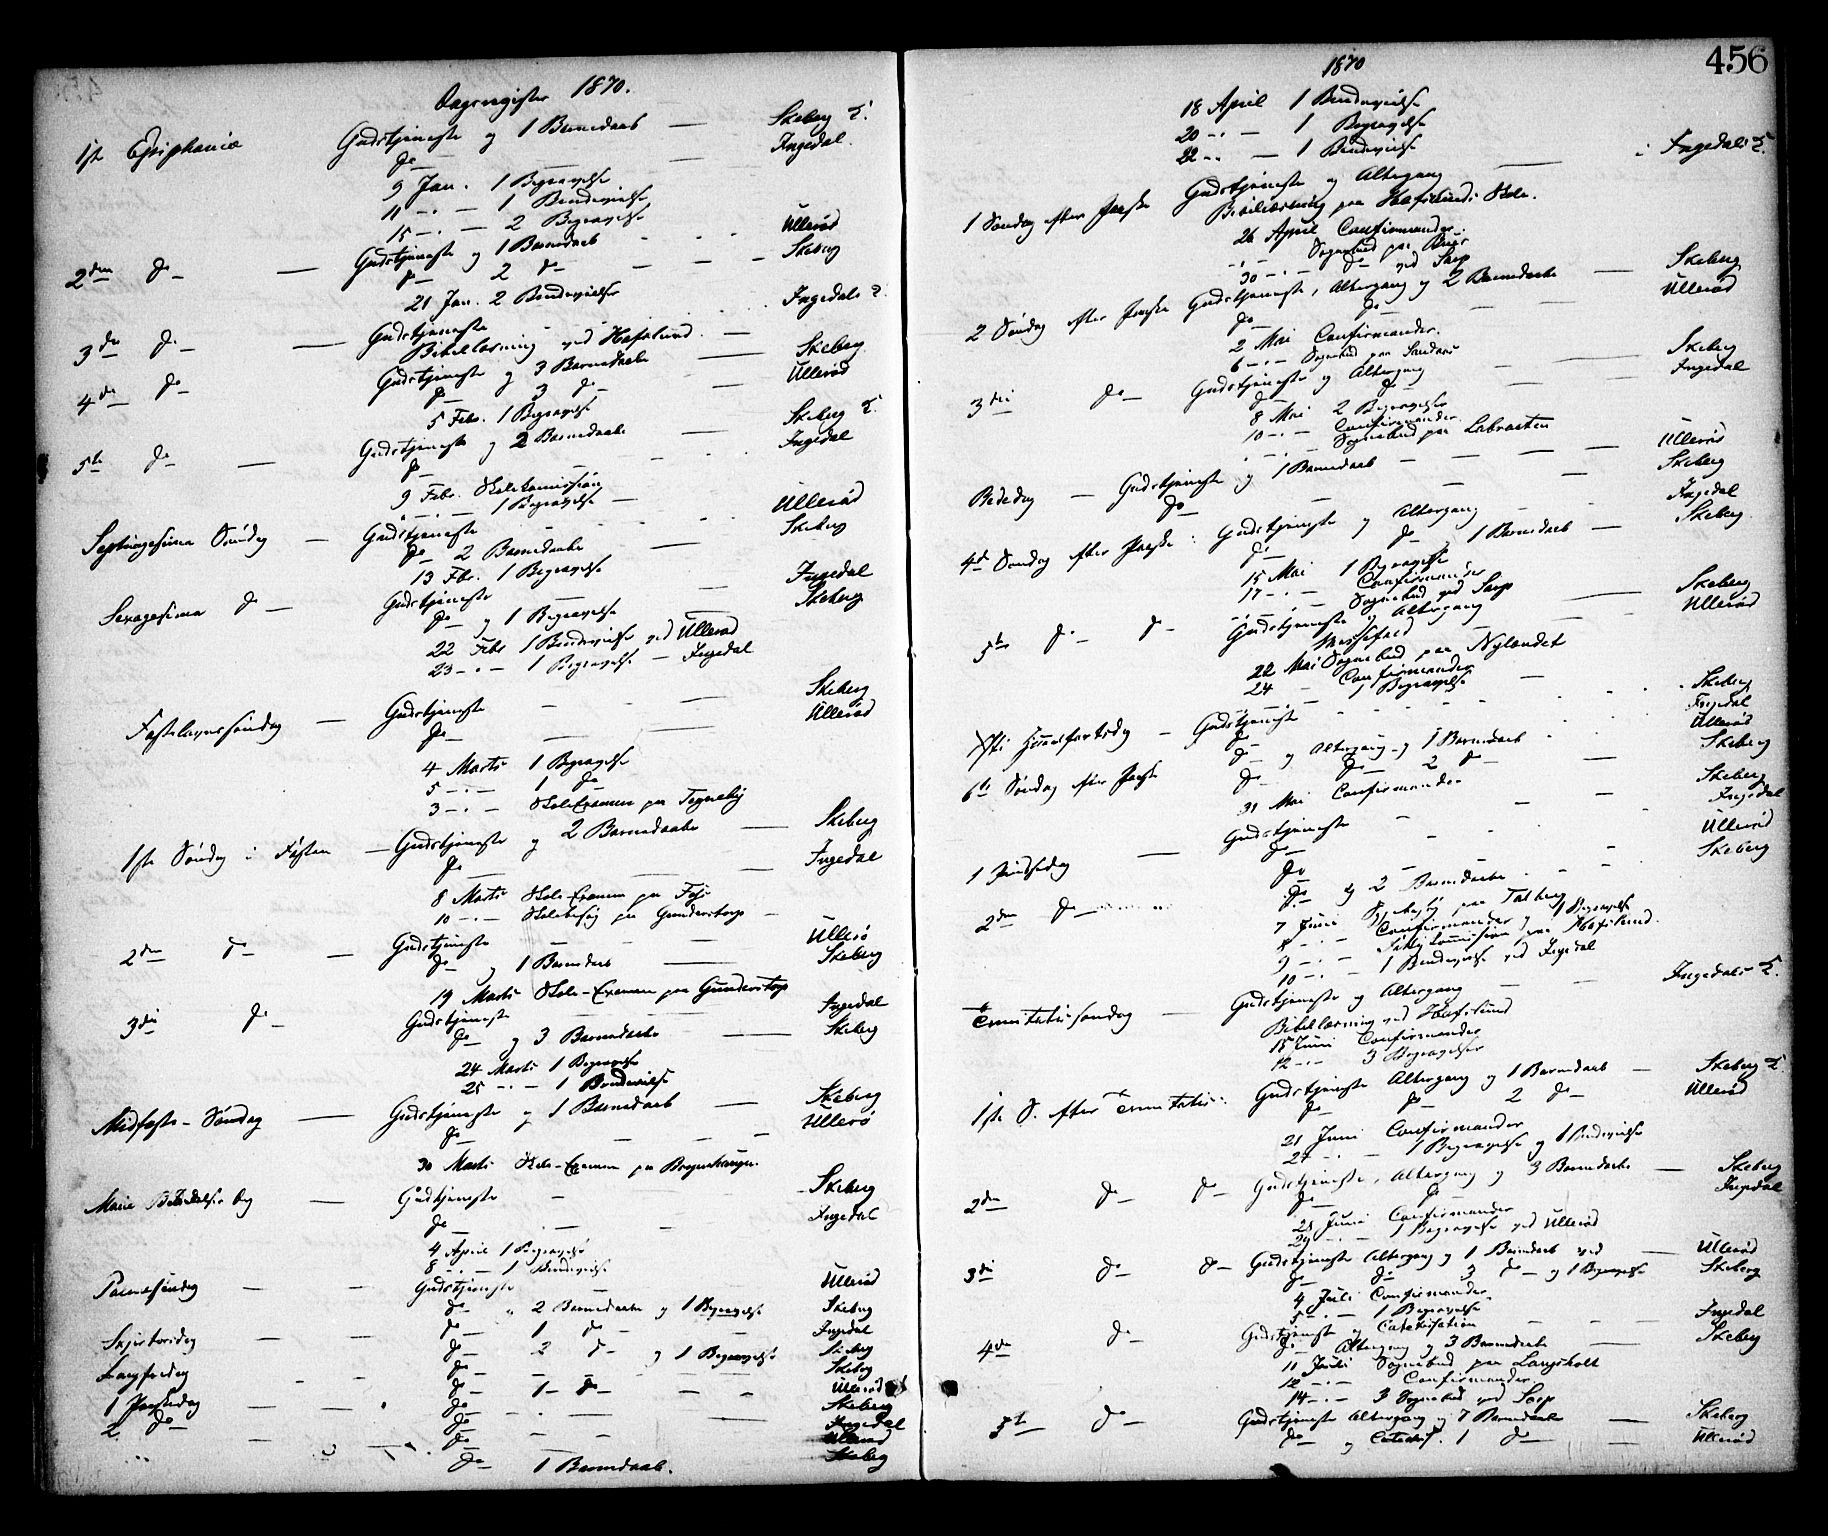 Dagregister 1870.
1ste Epiphaniæ Gudstjeneste og 1 Barnedaab — Skeberg K.
do — — Ingedal.
9 Jan. 1 Begravelse
11 - - 1 Brudevielse
15 - - 2 Begravelse
2den do — Gudstjeneste og 1 Barnedaab - - - Ullerød
do 2 do — - - - Skeberg
21 Jan. 2 Brudevielser
3die do — Gudstjeneste - - - Ingedals K.
Bibellæsning ved Hafslund. —
4de do Gudstjeneste og 3 Barnedaabe — Skeberg
do 3 do — Ullerød
5 Febr. 1 Begravelse
5te do — Gudstjeneste og 2 Barnedaabe — Skeberg K.
do — — - - Ingedal
9 Febr. Skolekomission
- - - 1 Begravelse —
Septuagesima Søndag — Gudstjeneste - - - Ullerød
do 2 Barnedaabe — Skeberg
13 Fbr. 1 Begravelse
Sexagesima do — Gudstjeneste — Ingedal
do og 1 Begravelse Skeberg
22 Febr 1 Brudevielse ved Ullerød
23 - - 1 Begravelse — Ingedal
Fastelavnssøndag — Gudstjeneste - - — Skeberg
do — — — Ullerød
4 Marts 1 Begravelse
5 - - 1 do
3 - - Skole Examen paa Tegneby
1ste Søndag i Fasten — Gudstjeneste og 2 Barnedaabe — Skeberg
do — — Ingedal
8 Marts Skole-Examen paa
10 - - Skolebesøg paa Gunderstorp —
2den do — Gudstjeneste — — Ullerø
do og 1 Barnedaab — Skeberg
19 Marts Skole-Examen paa Gunderstorp
3die do — Gudstjeneste — — Ingedal
do og 3 Barnedaabe — Skeberg
24 Marts 1 Begravelse
25 - - 1 Brudevielse
Midfaste-Søndag — Gudstjeneste og 1 Barnedaab — Skeberg
do — — — Ullerø
30 Marts Skole-Examen paa
Mariæ Bebudelses Dag — Gudstjeneste — Skeberg
do — — Ingedal
4 April 1 Begravelse
8 - - 1 Brudevielse
Palmesøndag — Gudstjeneste — Ullerød
do 2 Barnedaabe og 1 Begravelse Skeberg
Skjærtorsdag — do 1 do — Ingedal
do 2 do og 1 Begravelse Skeberg
Langfredag — do — Skeberg
do 1 do — Ullerød
1 Paaskedag — do — Skeberg
2 do do — Ingedal
— do — Ullerød
do 1 Barnedaab. Skeberg
456
1870
18 April 1 Brudevielse
20 - - 1 Begravelse
22 - - 1 Brudevielse
1 Søndag efter Paaske Gudstjeneste og Altergang — i Ingedals K.
Bibellæsning paa Hafslunds Skole.
26 April Confirmander.
- - - Sognebud paa
30 - - do ved Sarp
2 Søndag efter Paaske Gudstjeneste, Altergang og 2 Barnedaabe — Skeberg
do — do — Ullerød
2 Mai Confirmander.
6 - - Sognebud paa
3die do — Gudstjeneste og Altergang — Skeberg
do do — Ingedal
8 Mai 2 Begravelser
10 - - Confirmander
Sognebud paa
Bededag — Gudstjeneste og 1 Barnedaab — — Ullerød
do — — Skeberg
4de Søndag efter Paaske Gudstjeneste og Altergang — Ingedal
do do 1 Barnedaab — Skeberg
15 Mai 1 Begravelse
17 - - Confirmander
- - - Sognebud ved Sarp
5te do — do — Gudstjeneste og Altergang — Skeberg
Messefald — Ullerød
22 Mai Sognebud paa Nylandet
24 - Confirmander
- - - 1 Begravelse
Christi Himmelfartsdag — Gudstjeneste — Skeberg
do — Ingedal
6te Søndag efter Paaske do og Altergang og 1 Barnedaab — Ullerød
do do 2 do — Skeberg
31 Mai Confirmander
1 Pindsedag — Gudstjeneste — Skeberg
do — Ingedal
2den do — do — Ullerød
do og 2 Barnedaabe — Skeberg
7 Juni
8 - - Confirmander og 1 Begravelse
9 - - paa Hafslund.
10 - - 1 Brudevielse ved Ingedal
Trinitatissøndag — Gudstjeneste og Altergang — Ingedals K.
Bibellæsning ved Hafslund
15 Juni Confirmander
12 - - 3 Begravelser
1ste S. efter Trinitatis Gudstjeneste Altergang og 1 Barnedaab — Skeberg K.
do do 2 do — Ullerød
21 Juni Confirmander
- - 1 Begravelse og 1 Brudevielse
2den do — do — Gudstjeneste, Altergang og 3 Barnedaabe — Skeberg
do do Ingedal
Juni Confirmander
29 - - 1 Begravelse ved Ullerød
3die do — do — Gudstjeneste Altergang og 1 Barnedaab ved — Ullerød
do do 3 do og 1 Begravelse Skeberg
4 Juli Confirmander.
5 - - 1 Begravelse
4de do — Gudstjeneste og Catekisation — Ingedal
do Altergang og 3 Barnedaabe — Skeberg
11 Juli Sognebud paa Langsholt
12 - - Confirmander.
14 - - 3 Sognebud ved Sarp
5te do — Gudstjeneste Altergang og 7 Barnedaabe — Skeberg
do og Catechis. 1 do — Ullerød